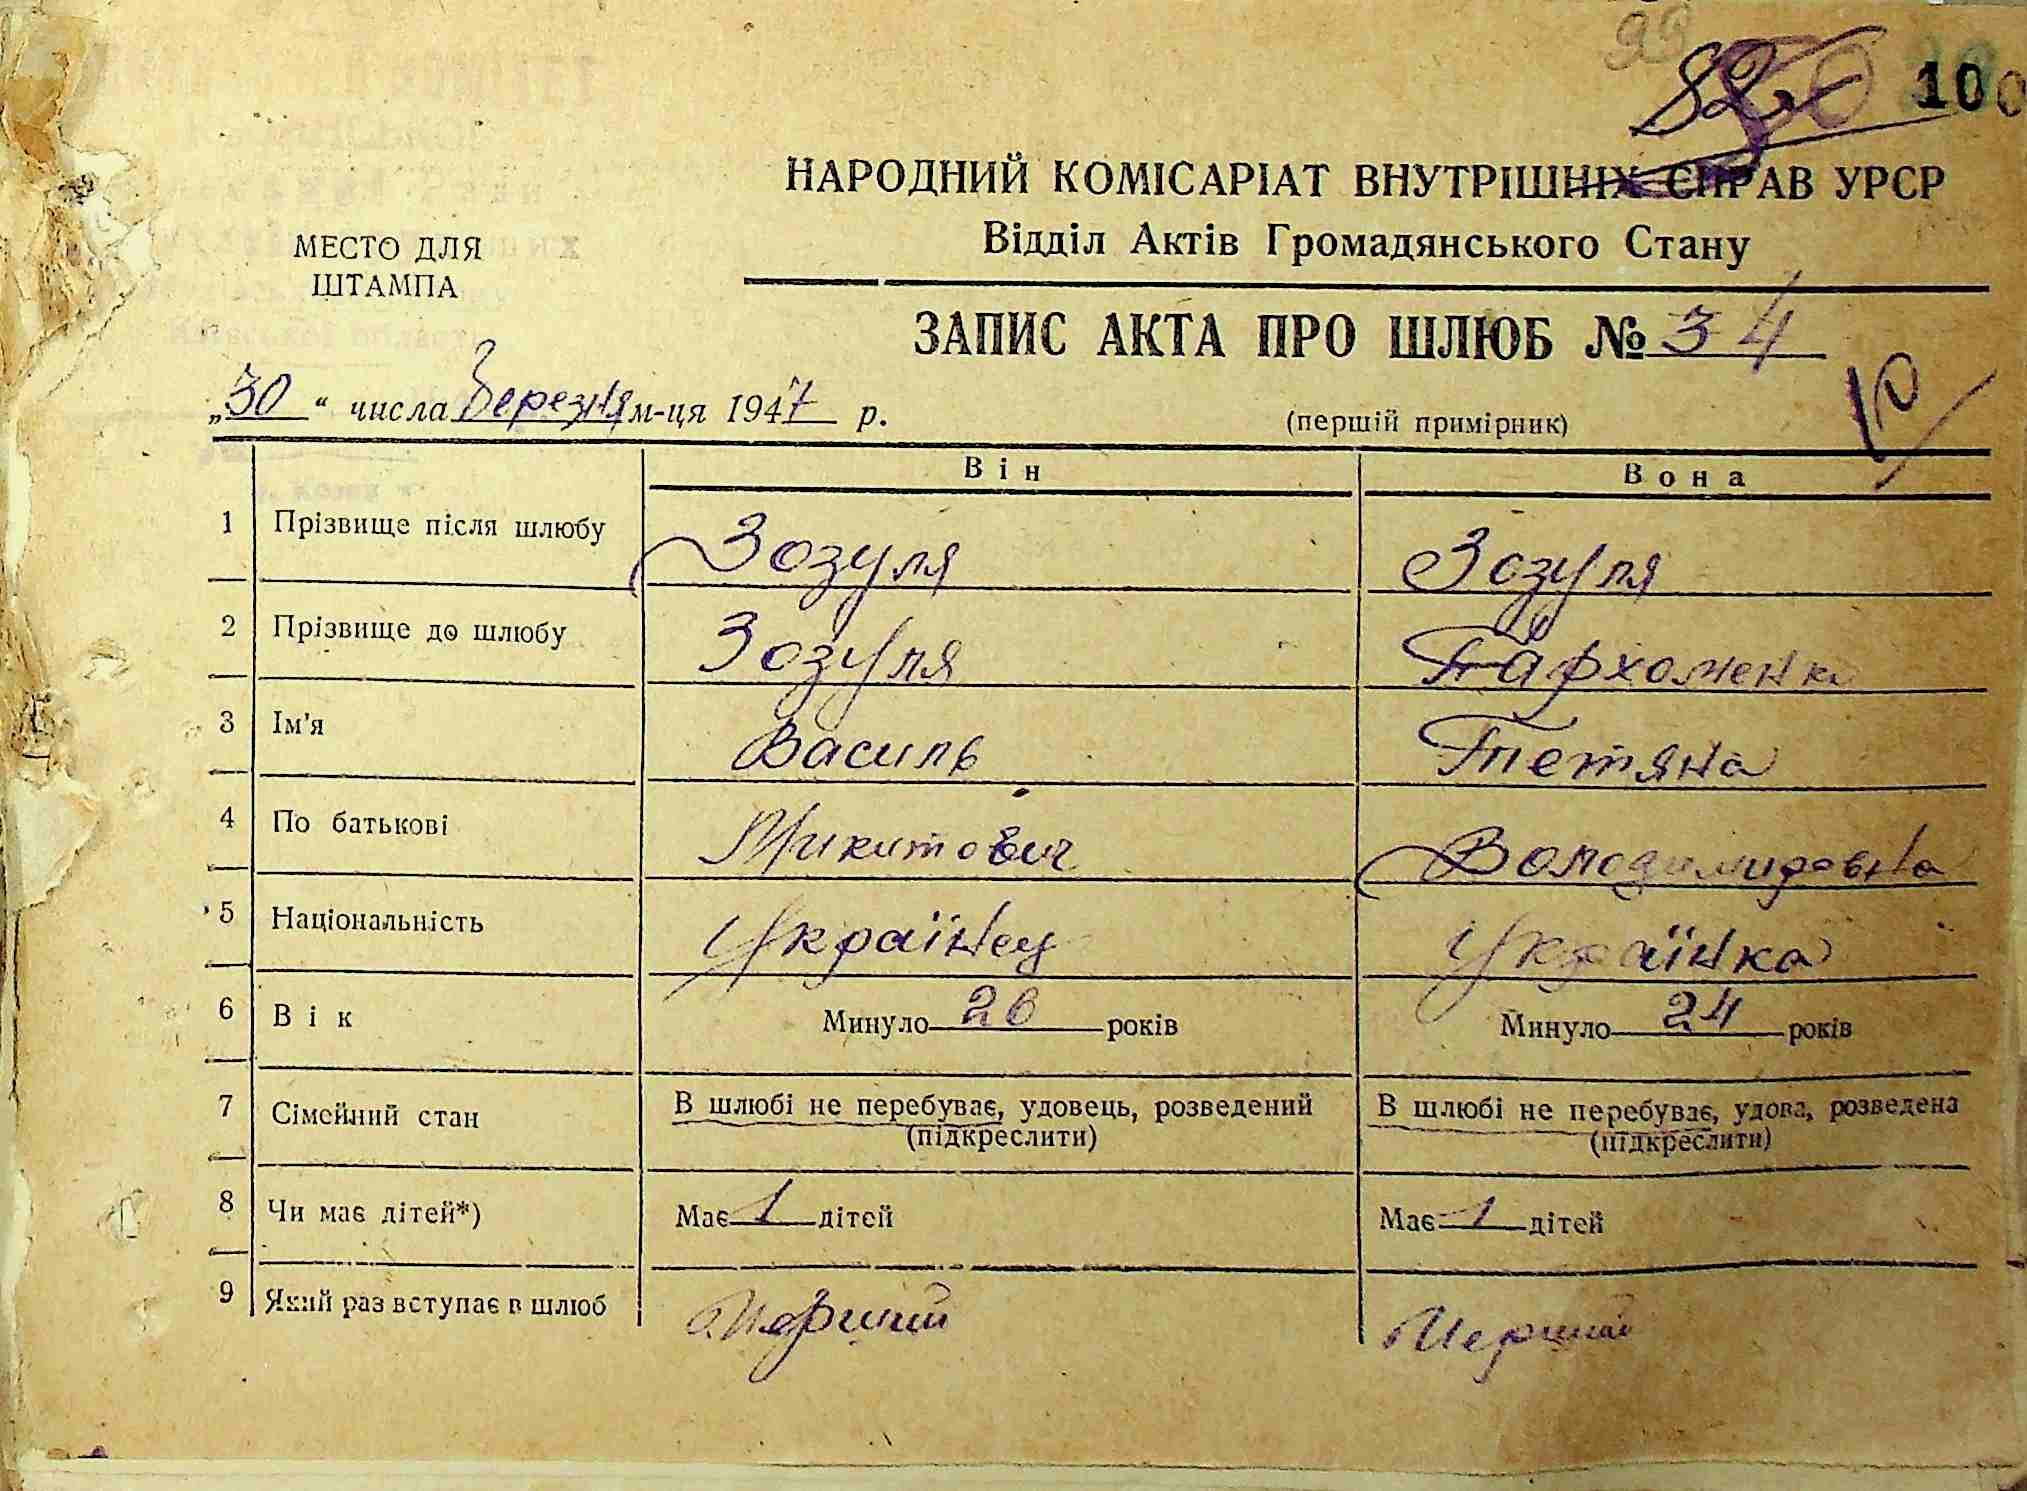 93
82
100
НАРОДНИЙ КОМІСАРІАТ ВНУТРІШНІХ СПРАВ УРСР
Відділ Актів Громадянського Стану
МЕСТО ДЛЯ
ШТАМПА
ЗАПИС АКТА ПРО ШЛЮБ № 34
„30“ числа Березня м-ця 1947 р.
(перший примірник)
Він Вона
1 Прізвище після шлюбу Зозуля Зозуля
2 Прізвище до шлюбу Зозуля Пархоменко
3 Ім'я Василь Тетяна
4 По батькові Микитович Володимировна
5 Національність Українец Українка
6 Вік Минуло 26 років Минуло 24 років
7 Сімейний стан В шлюбі не перебуває, удовець, розведений В шлюбі не перебуває, удова, розведена
(підкреслити) (підкреслити)
8 Чи має дітей*) Має 1 дітей Має 1 дітей
9 Який раз вступає в шлюб Перший Перший